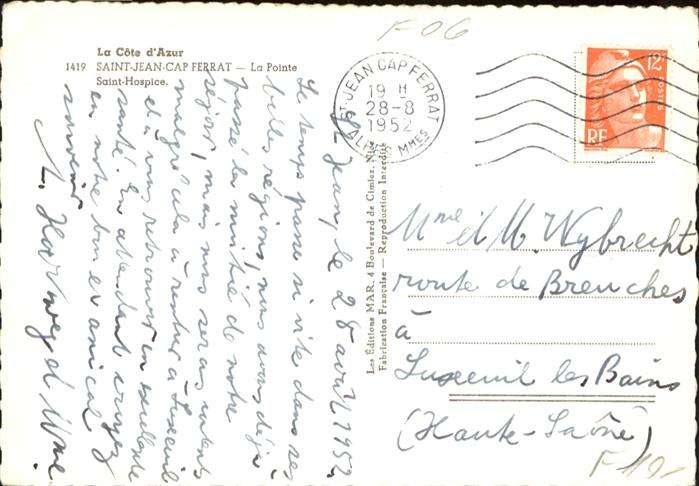 F 06
La Côte d'Azur
1419 SAINT-JEAN-CAP FERRAT — La Pointe
Saint-Hospice.
ST JEAN CAP FERRAT
19 H
28-8
1952
ALPES MMES
12F
POSTES
RF
St Jean, le 28 août 1952.
Le temps passe si vite dans ces
belles régions, nous avons déjà
passé la moitié de notre
séjour, mais nous serons contents
malgré cela à rentrer à Luxeuil
et à vous retrouver en excellente
santé. En attendant croyez
en notre bon et amical
souvenir
Les Éditions MAR, 4 Boulevard de Cimiez, Nice
Fabrication Française — Reproduction Interdite
Mme et M. Wybrecht
route de Breuches
à
Luxeuil les Bains
(Haute-Saône)
F 119